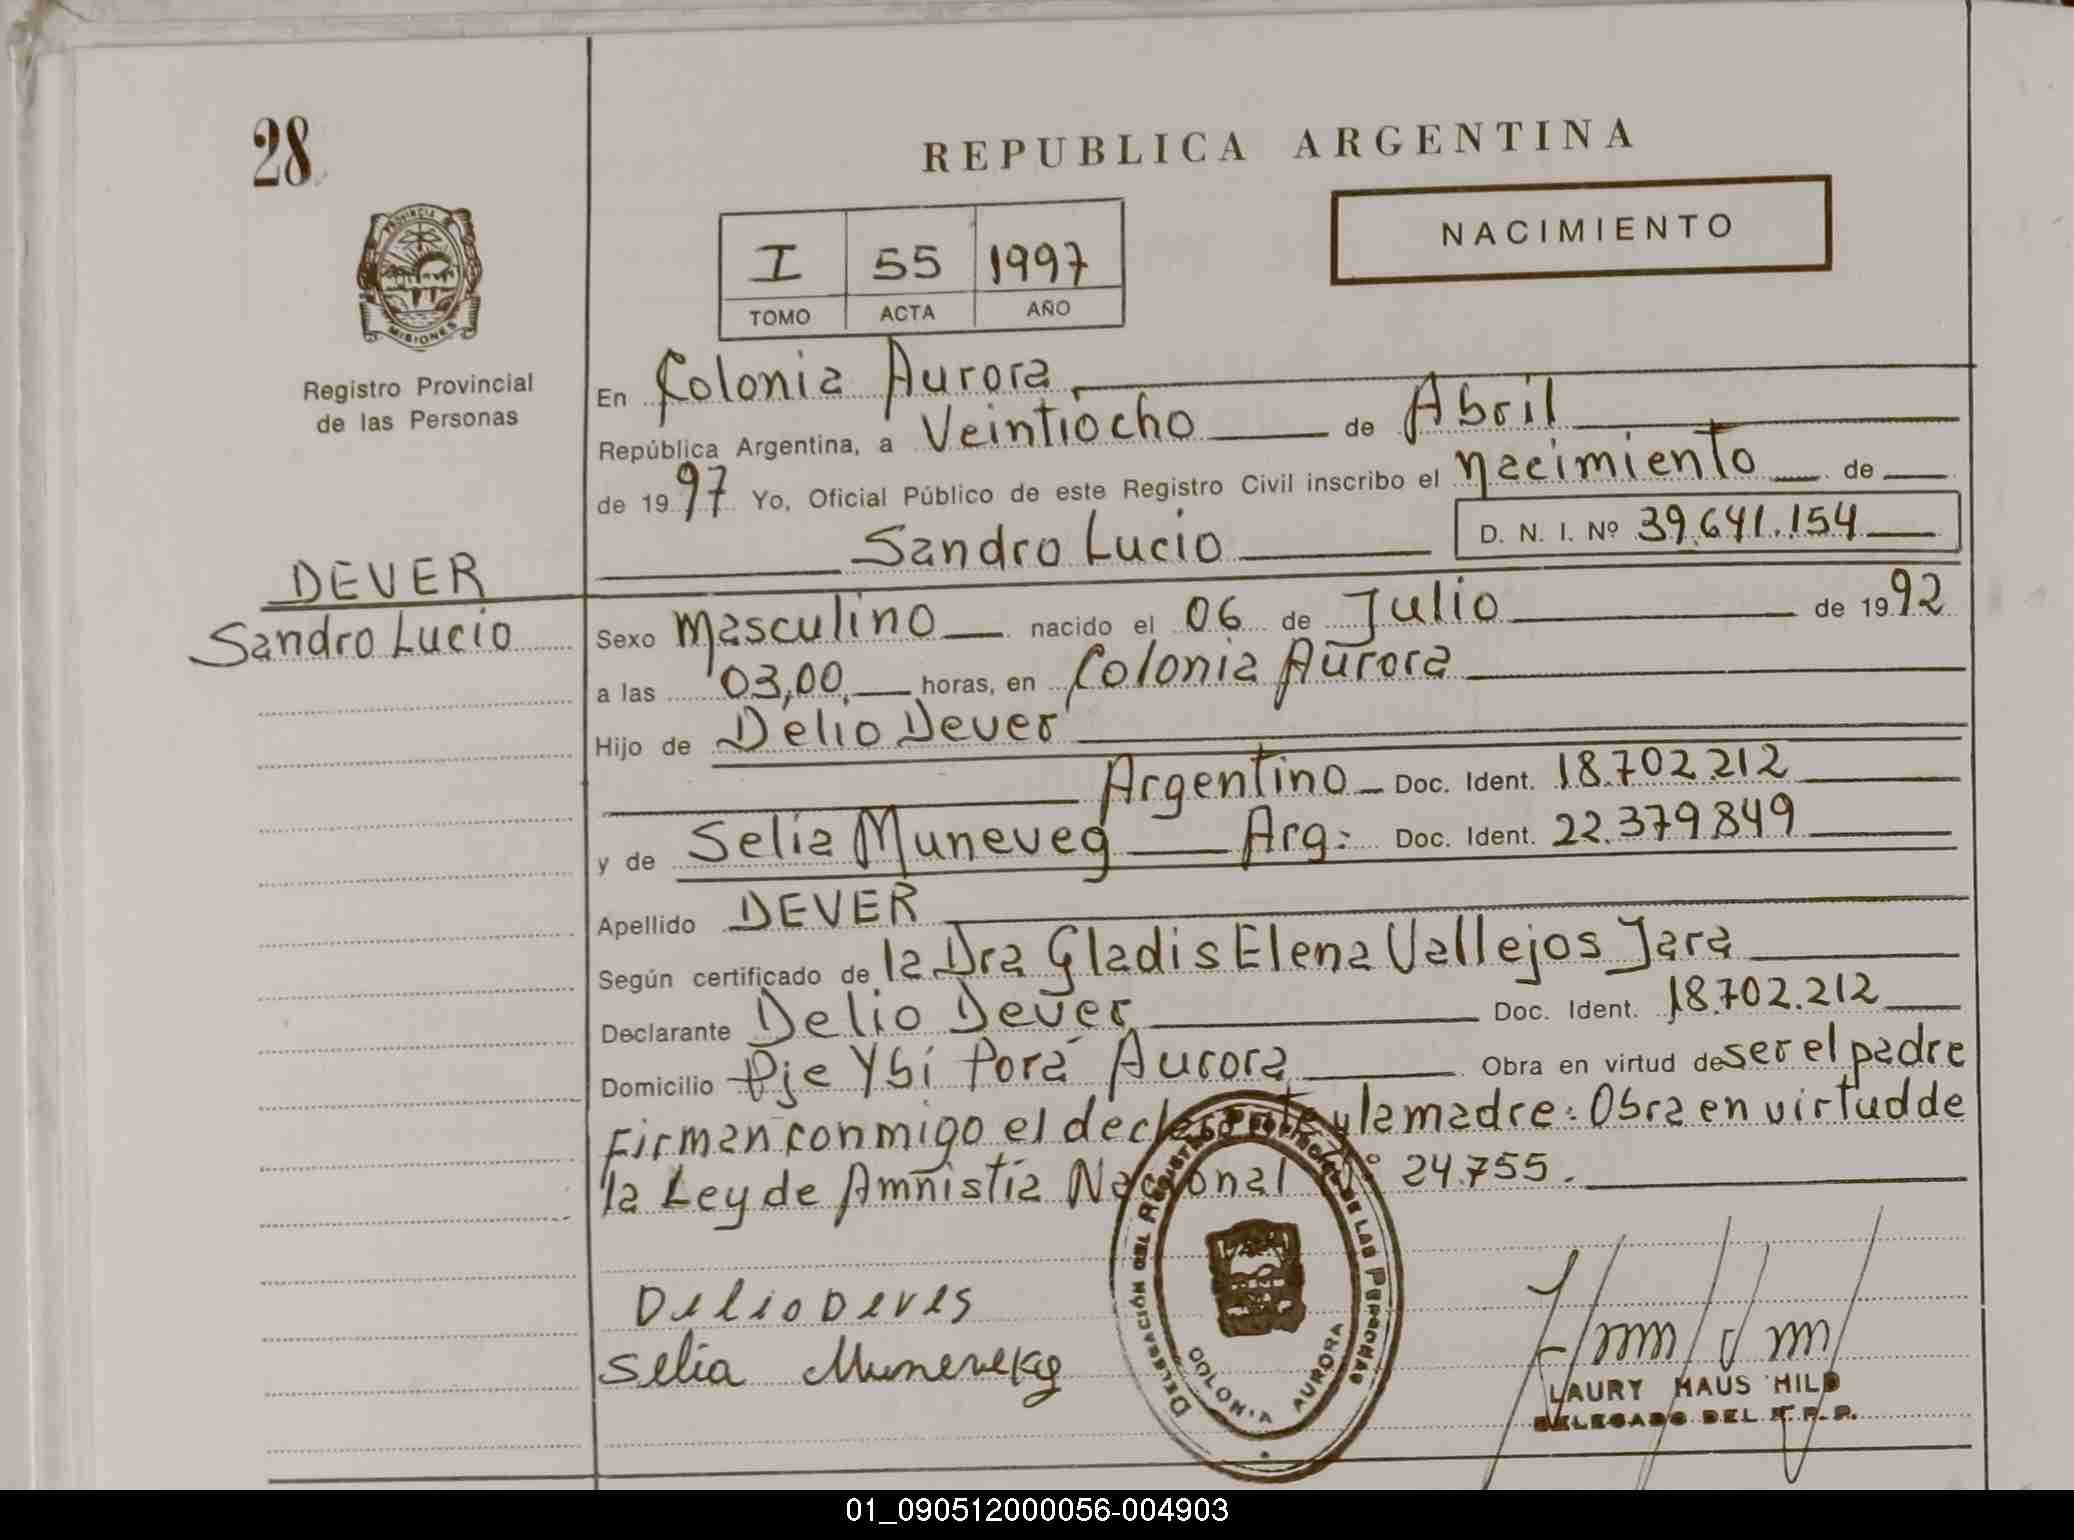 28
REPUBLICA ARGENTINA
NACIMIENTO
I 55 1997
TOMO ACTA AÑO
PROVINCIA
MISIONES
Registro Provincial
de las Personas
DEVER
Sandro Lucio
En Colonia Aurora
República Argentina, a Veintiocho de Abril
de 1997 Yo, Oficial Público de este Registro Civil inscribo el nacimiento de
Sandro Lucio D. N. I. Nº 39.641.154
Sexo masculino nacido el 06 de Julio de 1992
a las 03,00, horas, en Colonia Aurora
Hijo de Delio Dever
Argentino Doc. Ident. 18.702.212
y de Selia Muneveg Arg: Doc. Ident. 22.379.849
Apellido DEVER
Según certificado de la Dra Gladis Elena Vallejos Jara
Declarante Delio Dever Doc. Ident. 18.702.212
Domicilio Pje Ybí Porá Aurora Obra en virtud de ser el padre
Firman conmigo el declarante y la madre: Obra en virtud de
la Ley de Amnistía Nacional Nº 24.755.
Delio Dever
Selia Munevekg
DELEGACIÓN DEL REGISTRO PROVINCIAL DE LAS PERSONAS
COLONIA AURORA
LAURY HAUS HILD
DELEGADO DEL R.P.P.
01_090512000056-004903